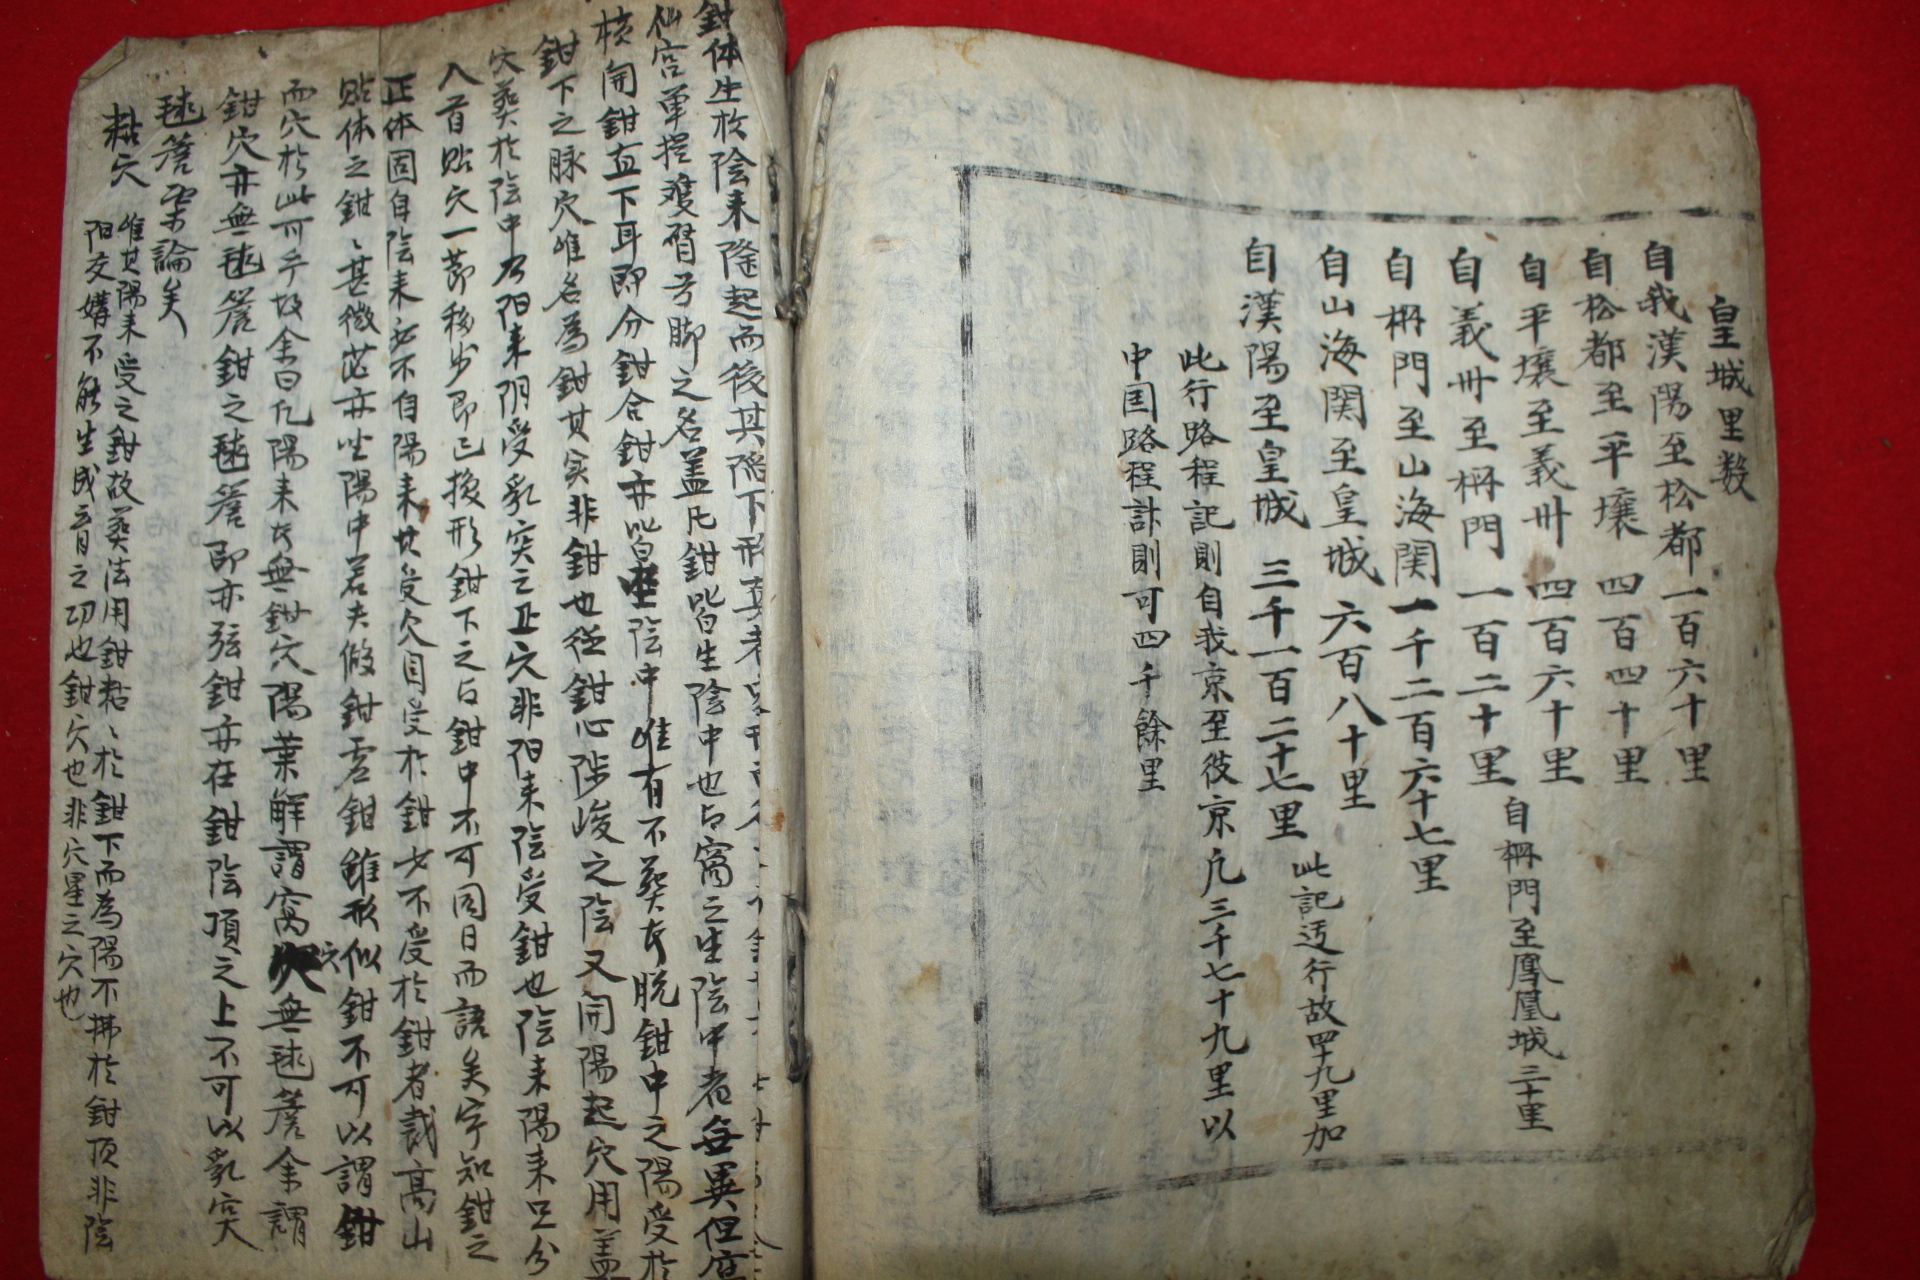 皇城里数
自我漢陽至松都一百六十里
自松都至平壤四百四十里
自平壤至義州四百六十里
自義州至柵門一百二十里 自柵門至鳳凰城三十里
自柵門至山海関一千二百六十七里
自山海関至皇城六百八十里
自漢陽至皇城三千一百二十七里 此記迃行故四十九里加
此行路程記則自我京至彼京凡三千七十九里以
中国路程計則可四千餘里
鉗体生於陰来隆起而後其陷下形真者
仙宮單提雙臂弓脚之名盖凡鉗皆生陰中也与窩之生陰中者無異但
核開鉗直下耳即分鉗合鉗亦皆坐陰中唯有不葬於脱鉗中之陽受於
鉗下之脉穴唯名為鉗其实非鉗也從鉗心陟峻之陰又開陽起穴用盖
穴葬於陰中乃阳来阴受乳突之正穴非阳来陰受鉗也陰来陽来只分
入首貼穴一節移步即已換形鉗下之与鉗中不可同日而語矣字知鉗之
正体固自陰来必不自陽来其受穴自受於鉗必不受於鉗者哉髙山
貼体之鉗〻甚微茫亦坐陽中若夫倣鉗虚鉗雖形似鉗不可以謂鉗
而穴於此可乎故余曰凡陽来者無鉗穴陽葉解謂窩穴無毬簷余謂
鉗穴亦無毬簷鉗之毬簷即亦弦鉗亦在鉗陰頂之上不可以乳突
毬簷渠論矣
粘穴 唯其陽来受之鉗故葬法用鉗粘〻於鉗下而為陽不拂於鉗頂非陰
阳交媾不能生成言有之功也鉗穴也非穴星之穴也